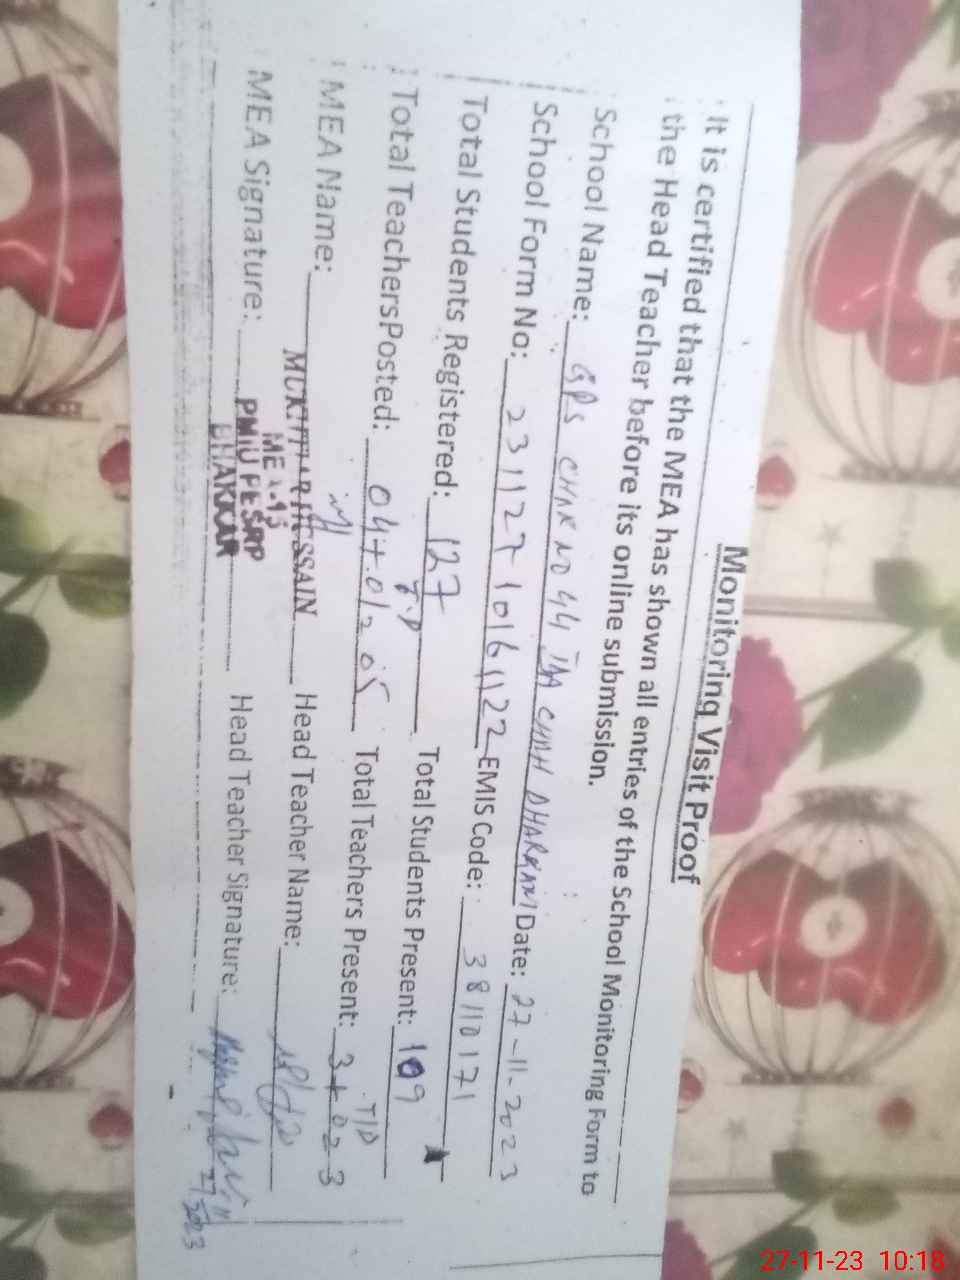 Monitoring Visit Proof
It is certified that the MEA has shown all entries of the School Monitoring Form to
the Head Teacher before its online submission.
School Name: GPS CHAK NO 44 Date: 27-11-2023
School Form No: EMIS Code: 38110171
Total Students Registered: 127 Total Students Present: 109
Total Teachers Posted: 04+01=05 Total Teachers Present: 3+0=3
MEA Name: MUKHTIAR HUSSAIN Head Teacher Name:
MEA Signature: PMIU PESRP Head Teacher Signature:
BHAKKAR
27-11-23 10:18